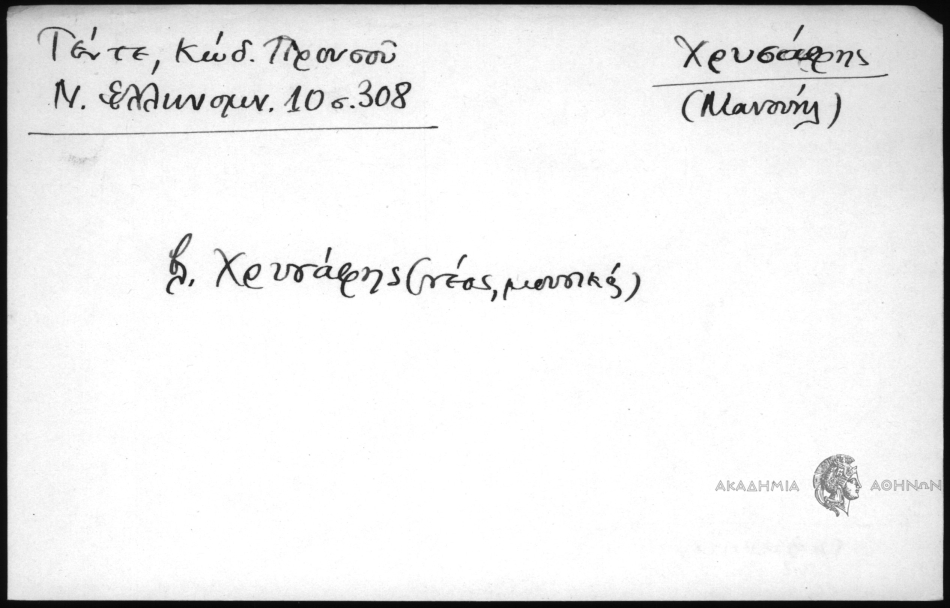 Τέντε, Κώδ. Προυσοῦ
Ν. Ἑλλην ομν. 10 σ. 308
Χρυσάφης
(Μανουήλ)
β. Χρυσάφης (νέος, μουσικός)
ΑΚΑΔΗΜΙΑ ΑΘΗΝΩΝ